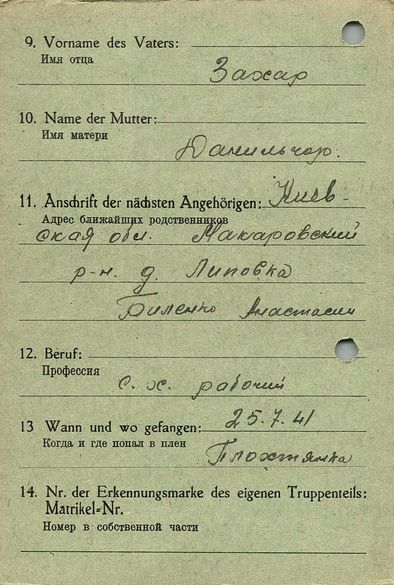 9. Vorname des Vaters:
Имя отца
Захар
10. Name der Mutter:
Имя матери
Данильчор.
11. Anschrift der nächsten Angehörigen: Киев-
Адрес ближайших родственников
ская обл. Макаровский
р-н. д. Липовка
Биленко Анастасии
12. Beruf:
Профессия
с. х. рабочий
13 Wann und wo gefangen: 25.7.41
Когда и где попал в плен
Плохтянка
14. Nr. der Erkennungsmarke des eigenen Truppenteils:
Matrikel-Nr.
Номер в собственной части